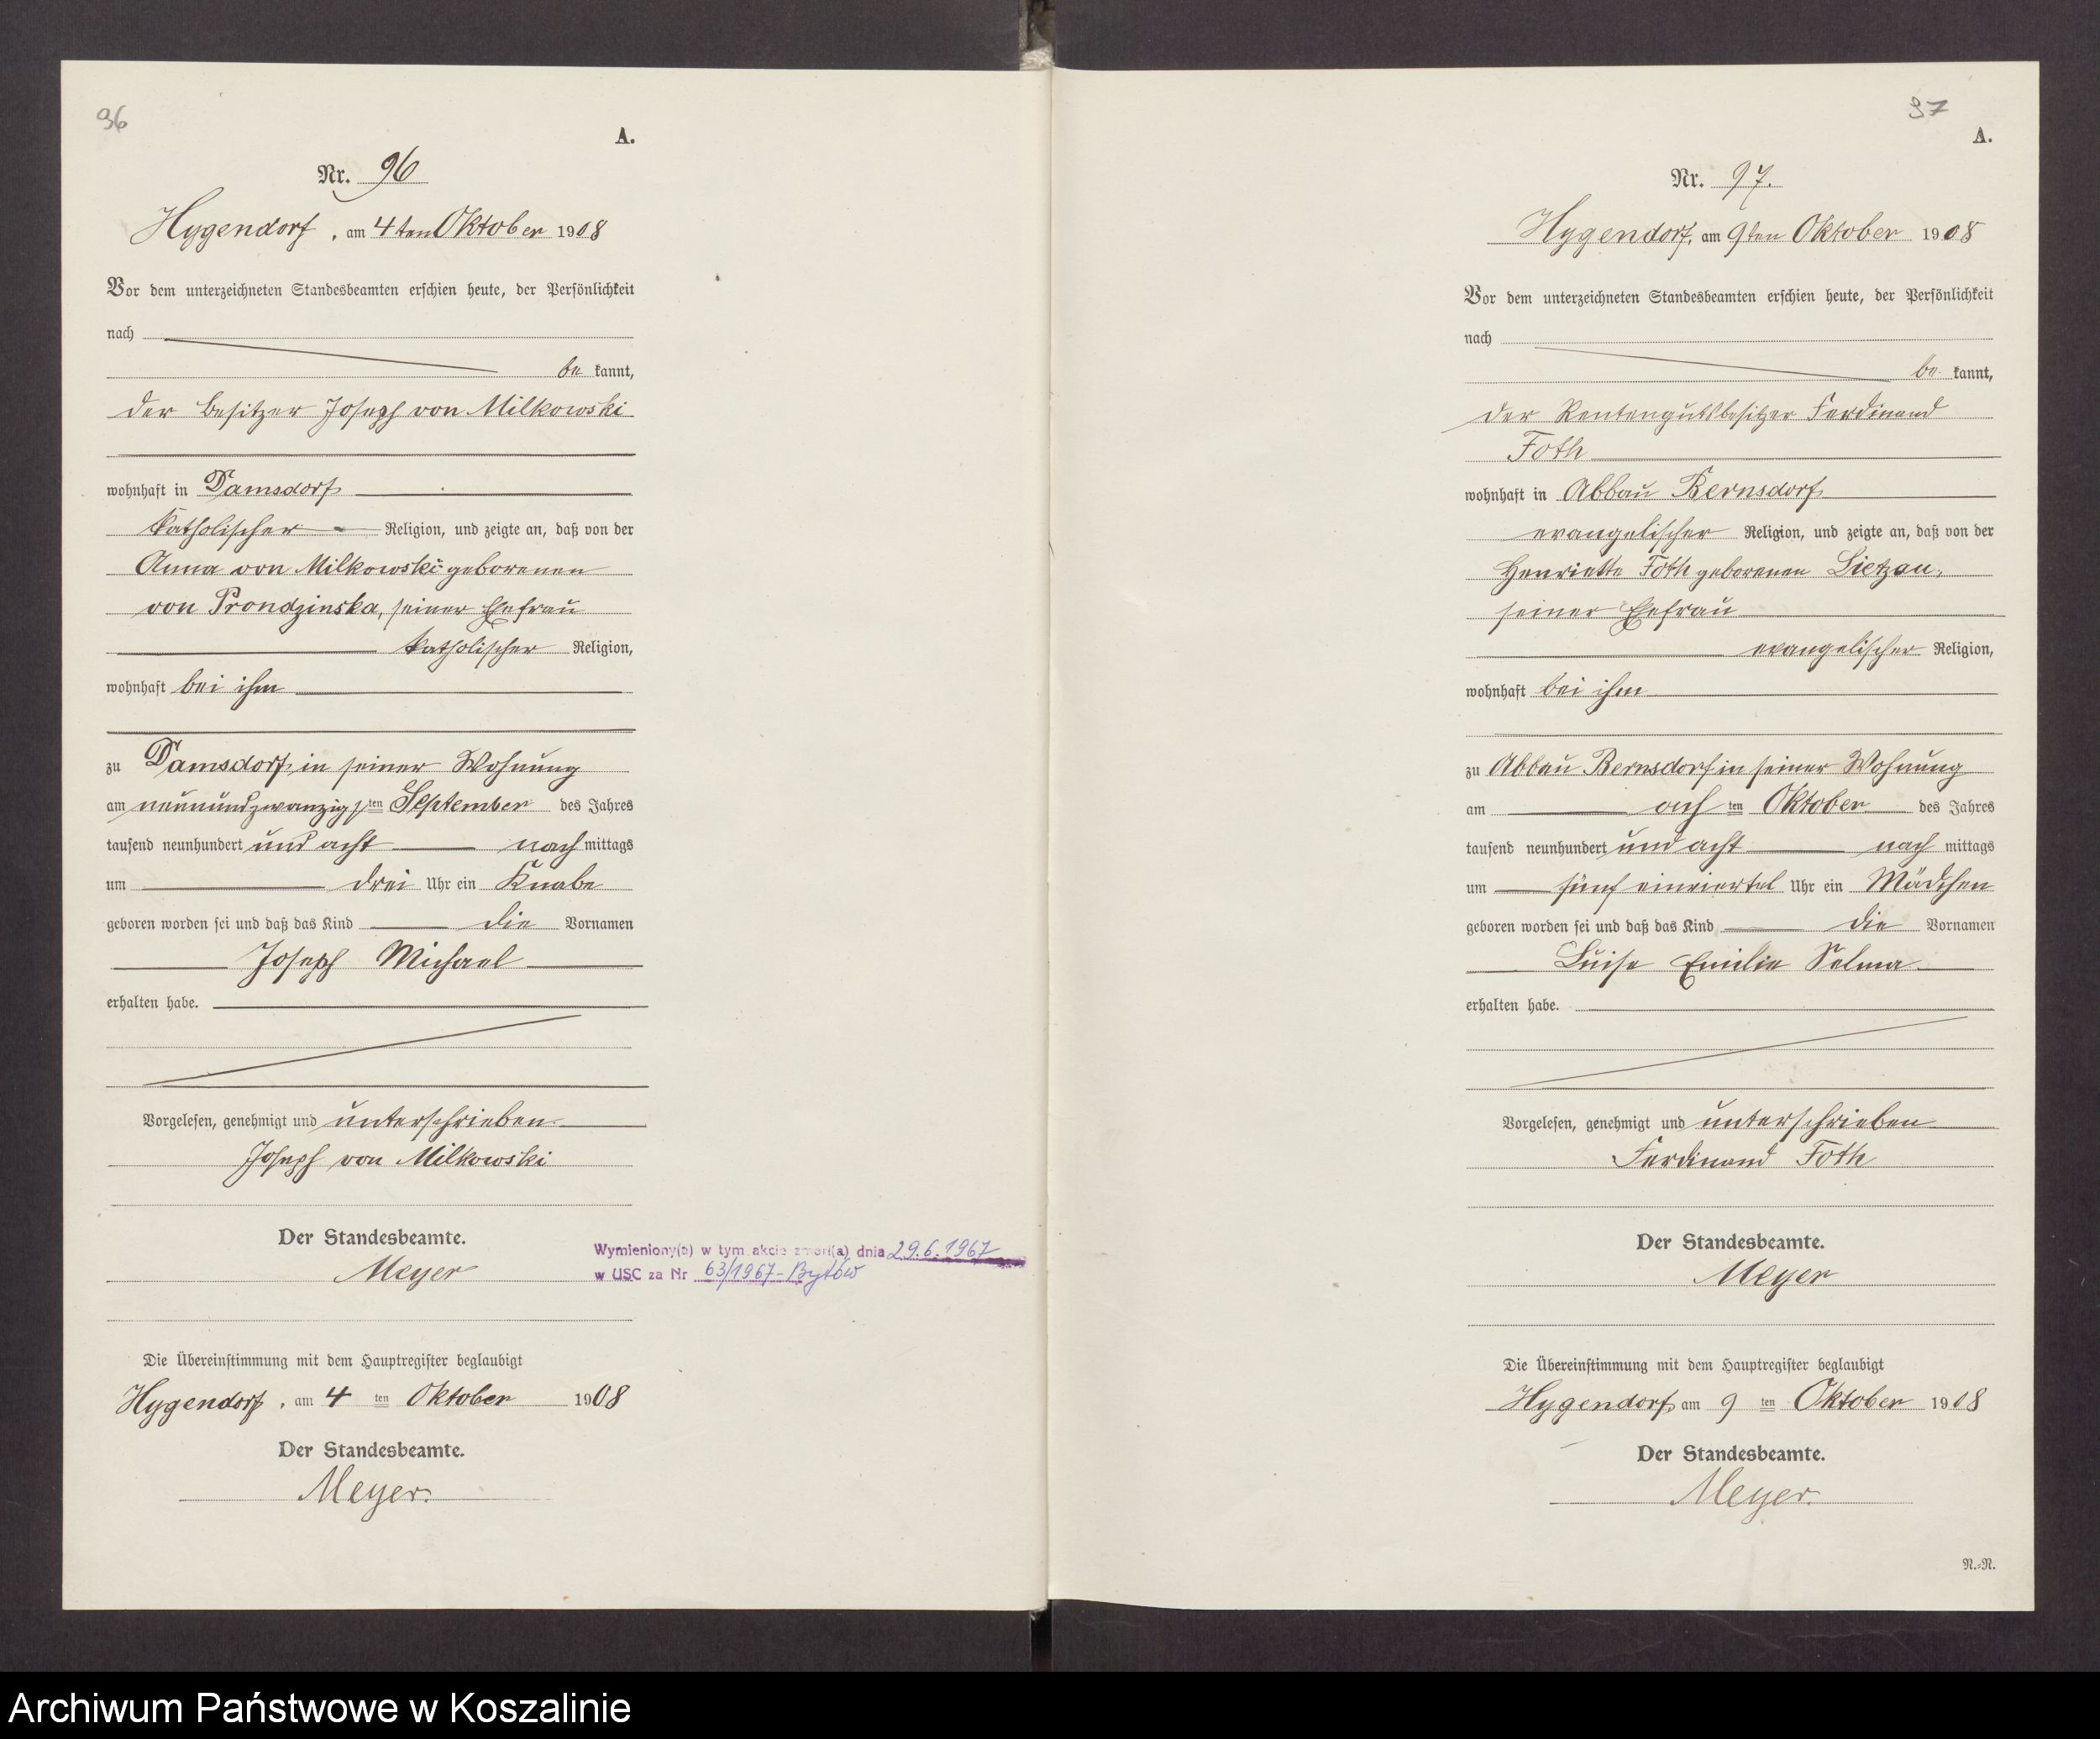 96
A.
Nr. 96
Hygendorf, am 4ten Oktober 1908
Vor dem unterzeichneten Standesbeamten erschien heute, der Persönlichkeit
nach
be kannt,
der Besitzer Joseph von Milkowski
wohnhaft in Damsdorf
katholischer Religion, und zeigte an, daß von der
Anna von Milkowski geborenen
von Prondzinska, seiner Ehefrau
katholischer Religion,
wohnhaft bei ihm
zu Damsdorf in seiner Wohnung
am neunundzwanzigsten September des Jahres
tausend neunhundert und acht nach mittags
um drei Uhr ein Knabe
geboren worden sei und daß das Kind die Vornamen
Joseph Michael
erhalten habe.
Vorgelesen, genehmigt und unterschrieben
Joseph von Milkowski
Der Standesbeamte.
Meyer
Wymieniony(a) w tym akcie zmarł(a) dnia 29.6.1967
w USC za Nr 63/1967 - Bytów
Die Übereinstimmung mit dem Hauptregister beglaubigt
Hygendorf, am 4 ten Oktober 1908
Der Standesbeamte.
Meyer.
97
A.
Nr. 97.
Hygendorf, am 9ten Oktober 1908
Vor dem unterzeichneten Standesbeamten erschien heute, der Persönlichkeit
nach
be kannt,
der Rentengutsbesitzer Ferdinand
Foth
wohnhaft in Abbau Bernsdorf
evangelischer Religion, und zeigte an, daß von der
Henriette Foth geborenen Lietzau,
seiner Ehefrau
evangelischer Religion,
wohnhaft bei ihm
zu Abbau Bernsdorf in seiner Wohnung
am ach ten Oktober des Jahres
tausend neunhundert und acht nach mittags
um fünf einviertel Uhr ein Mädchen
geboren worden sei und daß das Kind die Vornamen
Luise Emilie Selma
erhalten habe.
Vorgelesen, genehmigt und unterschrieben
Ferdinand Foth
Der Standesbeamte.
Meyer
Die Übereinstimmung mit dem Hauptregister beglaubigt
Hygendorf, am 9 ten Oktober 1908
Der Standesbeamte.
Meyer.
N.-N.
Archiwum Państwowe w Koszalinie